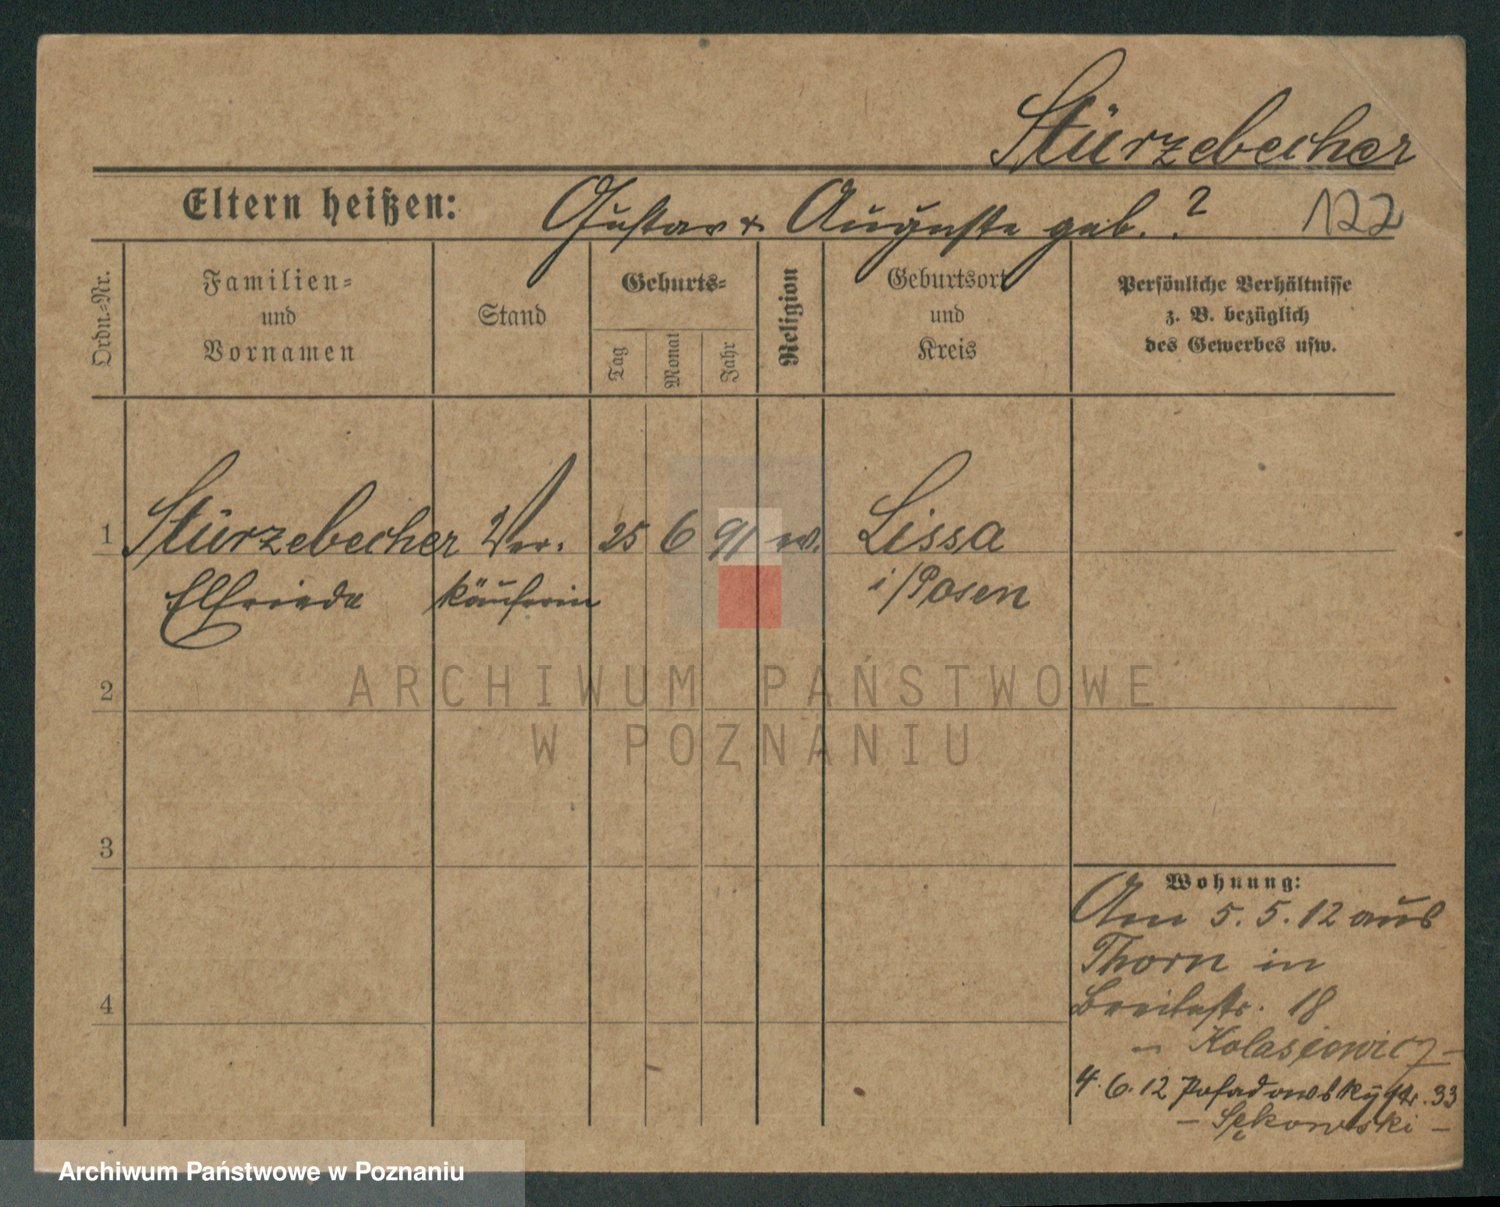 Stürzebecher
Eltern heißen: Gustav & Auguste geb. ? 122
Ordn=Nr.
Familien=
und
Vornamen
Stand
Geburts=
Tag
Monat
Jahr
Religion
Geburtsort
und
Kreis
Persönliche Verhältnisse
z. B. bezüglich
des Gewerbes usw.
1 Stürzebecher Ver- 25 6 91 ev. Lissa
Elfriede käuferin i/Posen
2
ARCHIWUM PAŃSTWOWE
W POZNANIU
3
Wohnung:
Am 5.5.12 aus
Thorn in
4 Breitestr. 18
– Kolasiewicz –
4.6.12 Posadowskystr. 33
– Sękowski –
Archiwum Państwowe w Poznaniu